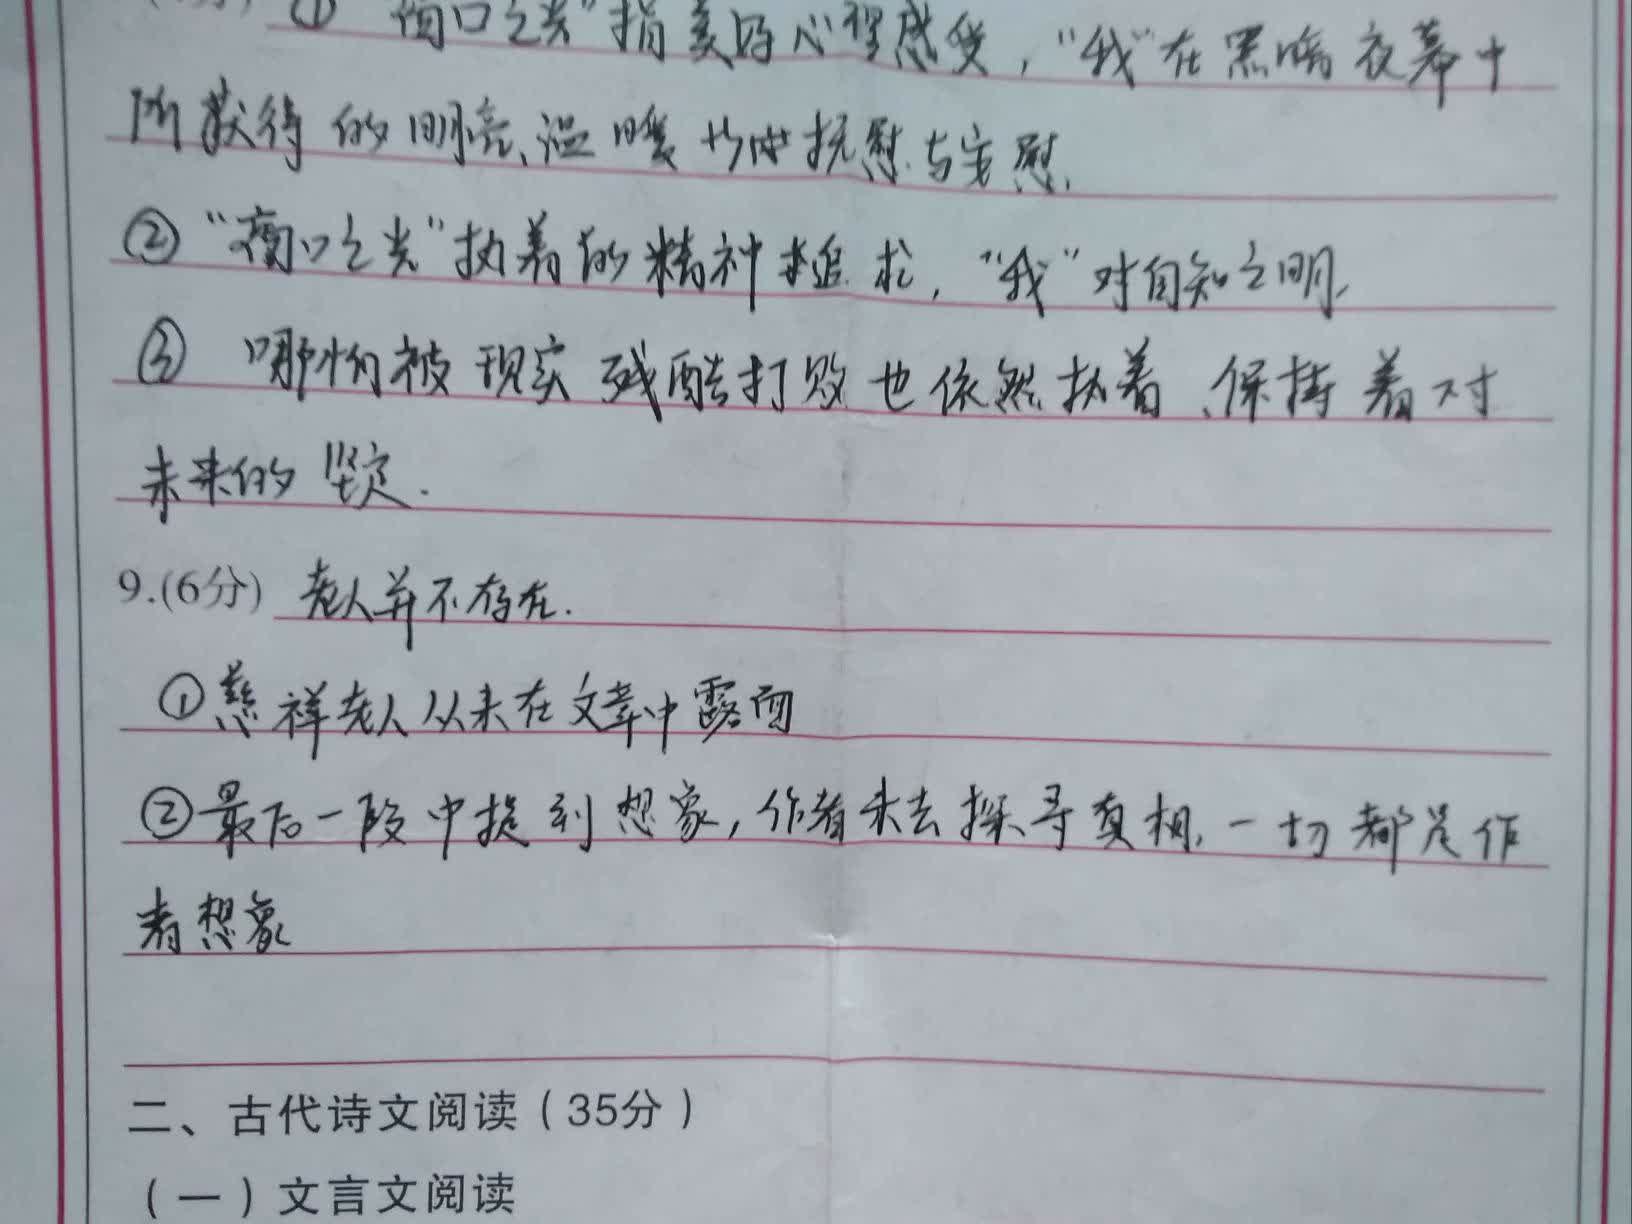 ① “窗口之光”指美的心理感受，“我”在黑暗夜幕中
所获得的明亮、温暖 抚慰与安慰.
② “窗口之光”执着的精神追求，“我”对自知之明.
③ 哪怕被现实残酷打败也依然执着、保持着对
未来的坚定.
9.(6分) 老人并不存在.
①慈祥老人从未在文章中露面
②最后一段中提到想象，作者未去探寻真相，一切都是作
者想象
二、古代诗文阅读（35分）
（一）文言文阅读